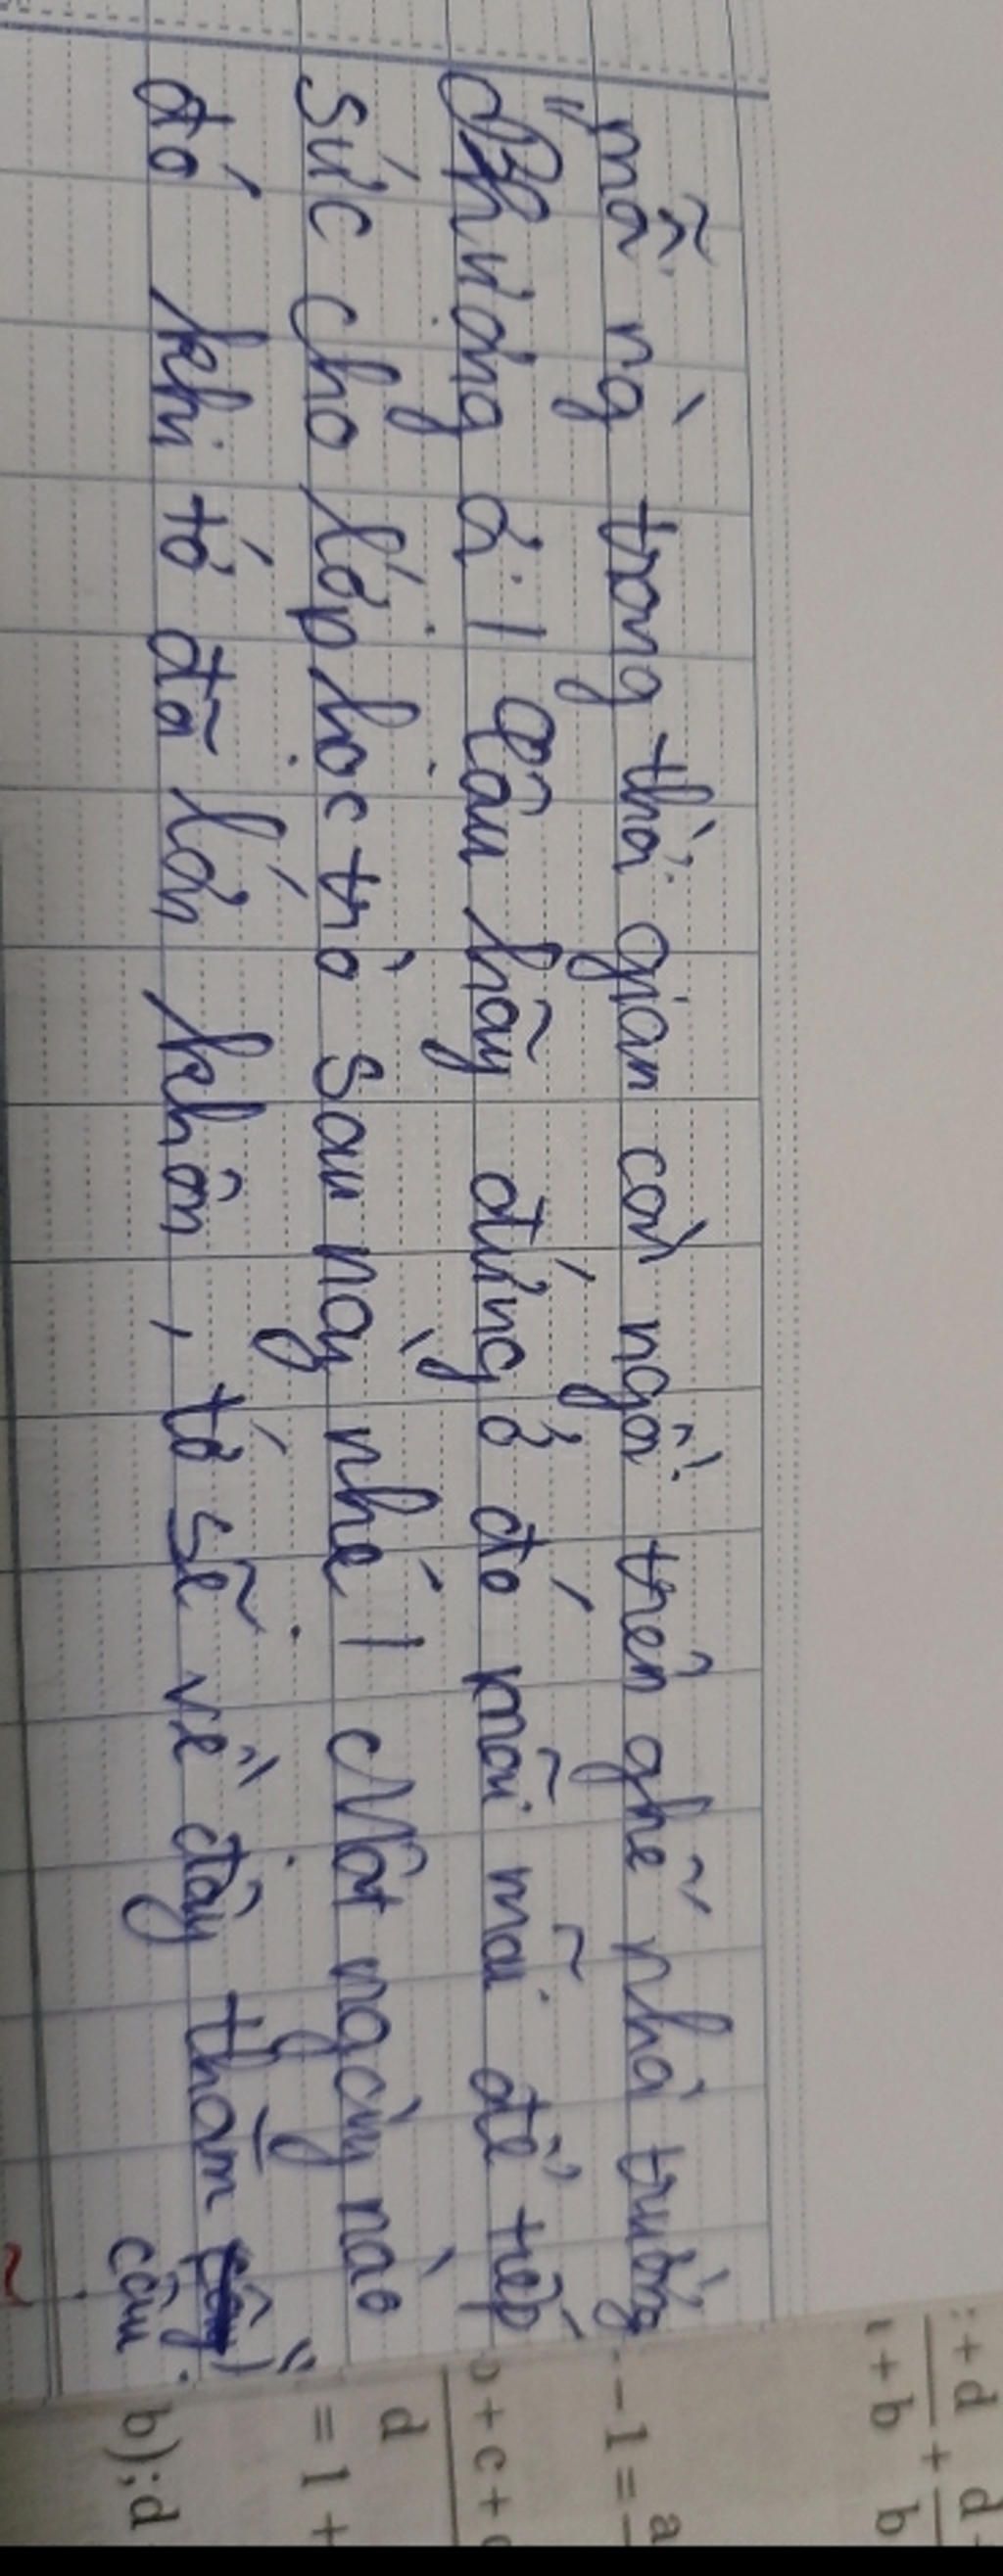 mỗi ng̀ trong thời gian còn ngồi trên ghế nhà trường
"Phượng ơi! Cậu hãy đứng ở đó mãi mãi để tiếp
sức cho lớp học trò sau này nhé! Một ngày nào
đó khi tớ đã lớn khôn, tớ sẽ về đây thăm !"
cậu
- 1 = a
+ c +
d
= 1 +
b); d